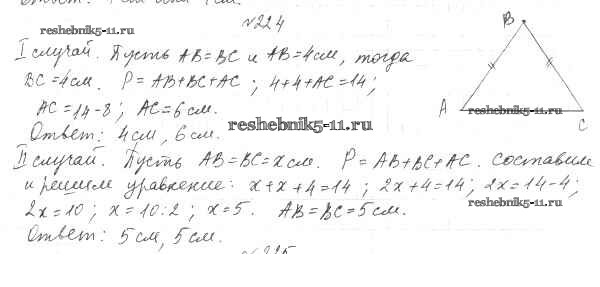 №224
reshebnik5-11.ru
I случай. Пусть AB=BC и AB=4см, тогда
BC=4см. P=AB+BC+AC ; 4+4+AC=14;
AC=14-8; AC=6см.
Ответ: 4см, 6см.
reshebnik5-11.ru
II случай. Пусть AB=BC=x см. P=AB+BC+AC. Составим
и решим уравнение: x+x+4=14 ; 2x+4=14; 2x=14-4;
reshebnik5-11.ru
2x=10; x=10:2; x=5. AB=BC=5см.
Ответ: 5см, 5см.
B
A
C